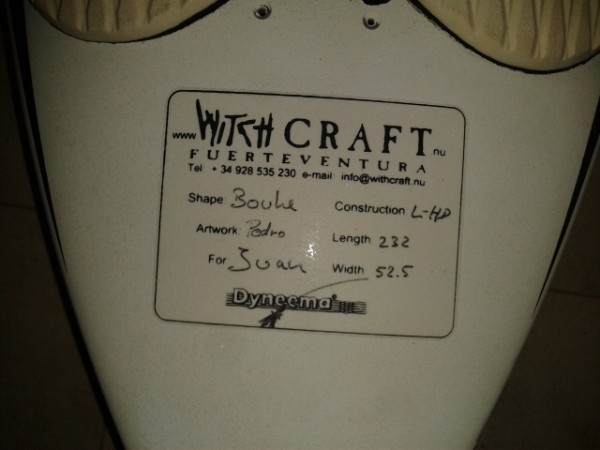 www WITCHCRAFT nu
FUERTEVENTURA
Tel + 34 928 535 230 e-mail info@withcraft.nu
Shape Bouke Construction L-HD
Artwork Pedro Length 232
For Juan Width 52.5
Dyneema